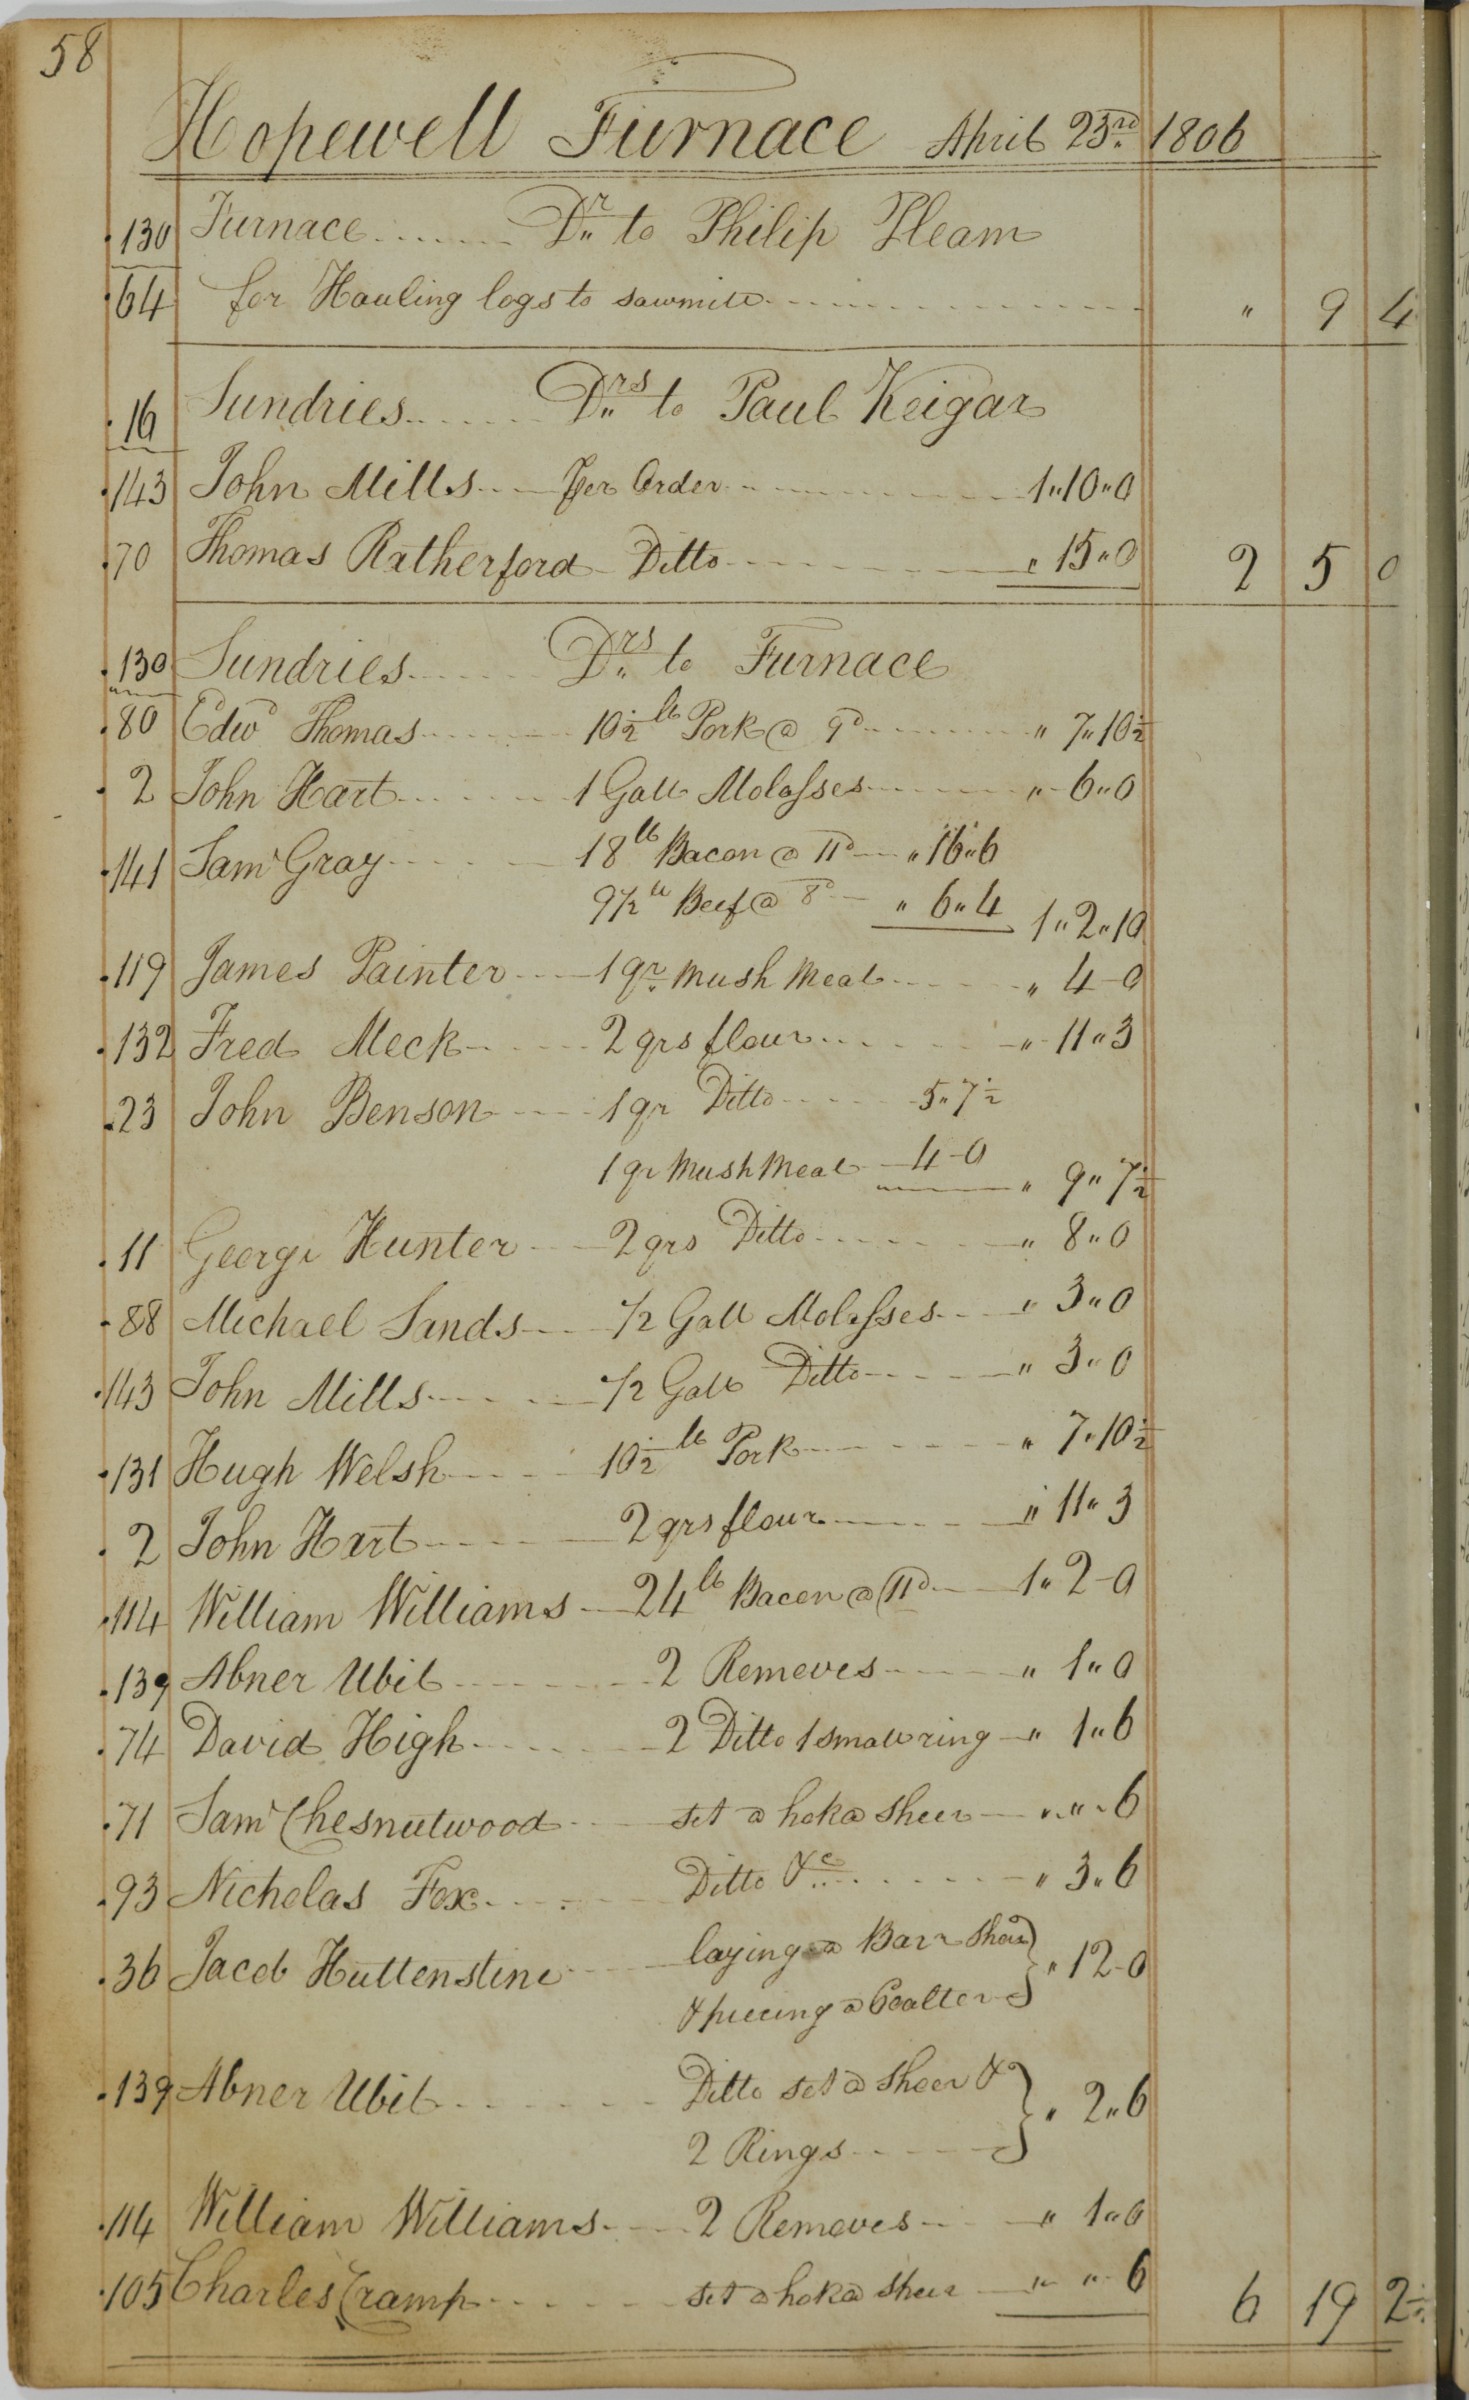 58
Hopewell Furnace April 23rd 1806
130 Furnace Dr to Philip Pleam
64 for Hauling logs to sawmill " 9 4
16 Sundries Drs to Paul Keigar
143 John Mills Per Order 1"10"0
70 Thomas Ratherford Ditto " 15"0 2 5 0
130 Sundries Drs to Furnace
80 Edwd Thomas 10½ lb Pork @ 9d " 7"10½
2 John Hart 1 Gall Molasses " 6"0
141 Saml Gray 18 lb Bacon @ 11d " 16"6
9½ lb Beef @ 8d " 6"4 1"2"10
119 James Painter 1 qr Mush Meal " 4-0
132 Fred Meck 2 qrs flour " 11"3
23 John Benson 1 qr Ditto 5"7½
1 qr Mush Meal 4-0 " 9"7½
11 George Hunter 2 qrs Ditto " 8"0
88 Michael Sands ½ Gall Molasses " 3"0
143 John Mills ½ Gall Ditto " 3"0
131 Hugh Welsh 10½ lb Pork " 7"10½
2 John Hart 2 qrs flour " 11"3
114 William Williams 24 lb Bacon @ 11d 1"2-0
139 Abner Ubil 2 Removes " 1"0
74 David High 2 Ditto 1 small ring " 1"6
71 Saml Chesnutwood set a hok a sheer " " 6
93 Nicholas Fox Ditto &c " 3"6
36 Jacob Huttenstine laying a Barr Shear
& piecing a Coalter " 12-0
139 Abner Ubil Ditto set a sheer &
2 Rings " 2"6
114 William Williams 2 Removes " 1"0
105 Charles Cramp set a hok a sheer " " 6 6 19 2½